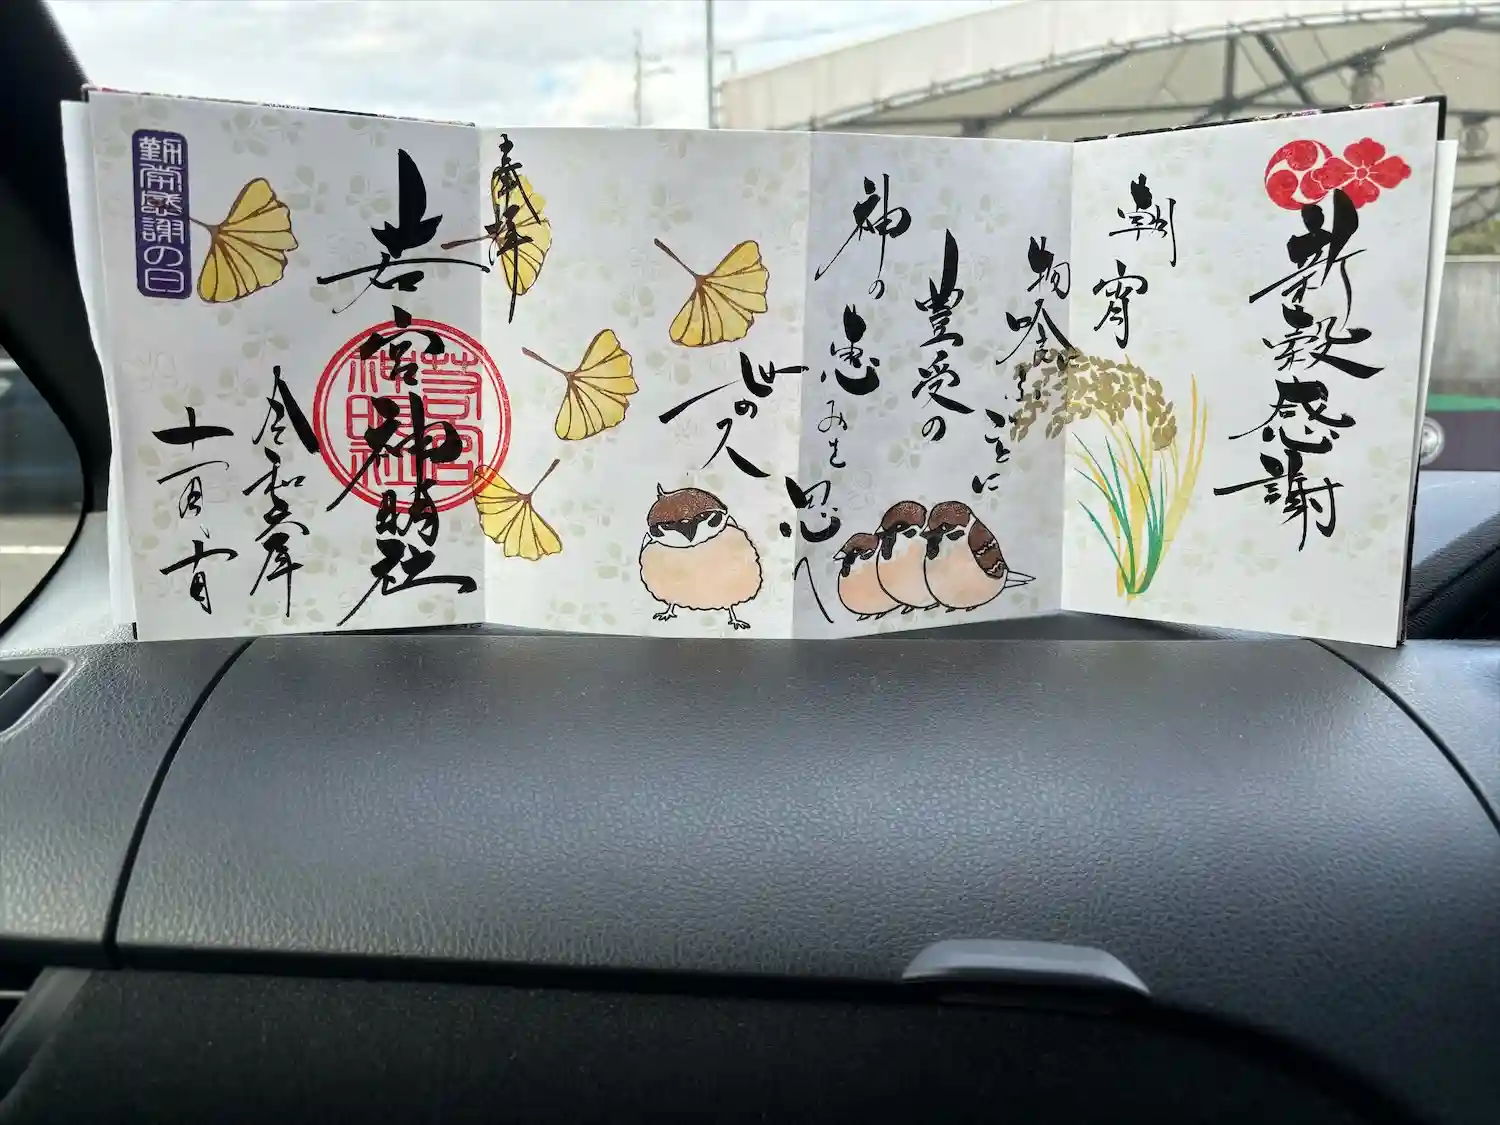 新穀感謝
朝宵に
物喰ふごとに
豊受の
神の恵みを思へ
世の人
奉拝
若宮神明社
若宮神明社
令和六年
十一月
勤労感謝の日